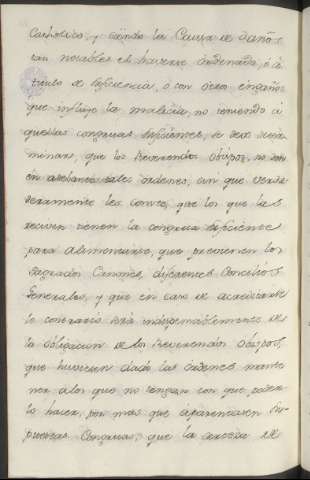 Catholico, y siendo la Causa de daños
tan notables el haverse ordenado, ó á
titulo de suficiencia, ó con otro engaño
que influye la malicia, no teniendo a
quellas congruas suficientes, se debe
minar, que los Reverendos Obispos, no
en adelante tales ordenes, sin que verda
deramente les conste, que los que las
reciven tienen la congrua suficiente
para alimentarse, que previenen los
Sagrados Canones, diferentes Concilios
Generales, y que en caso de acreditarse
lo contrario será indispensablemente de
la obligacion de los Reverendos Obispos,
que huviesen dado las ordenes mante
ner alos que no tengan con que poder
lo hacer, por más que aparenciasen im
puestas Congruas, que la de